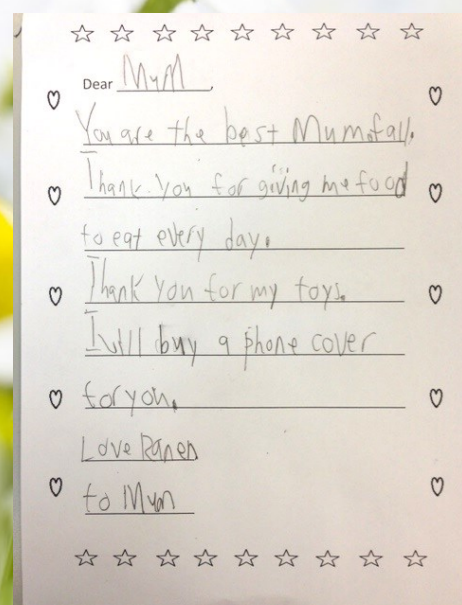 Dear MuM,
You are the best Mumofall.
Thank You for giving me food
to eat every day.
Thank You for my toys.
I will buy a phone cover
for you.
Love Ranen
to Mum